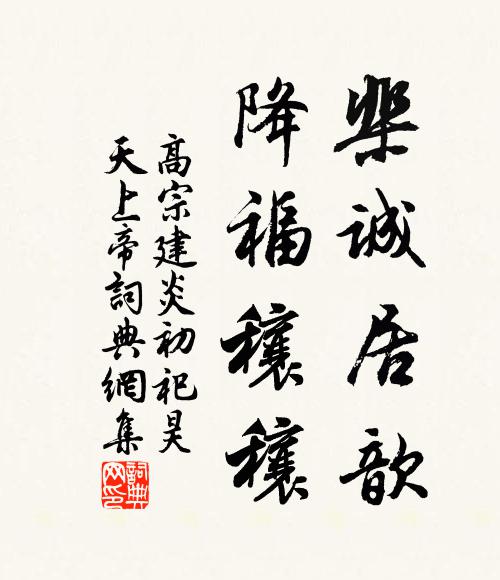 棐誠居歆
降福穰穰
高宗建炎初祀昊
天上帝詞典網集
詞典网印